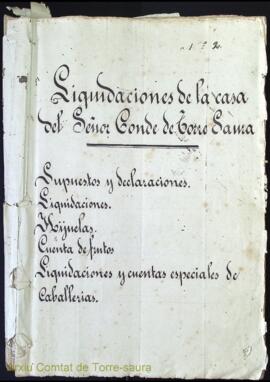 nº 2.
Liquidaciones de la casa
del Señor Conde de Torre Saura
Supuestos y declaraciones.
Liquidaciones.
Hijuelas.
Cuenta de frutos
Liquidaciones y cuentas especiales de
Caballerias.
Arxiu Comtat de Torre-saura